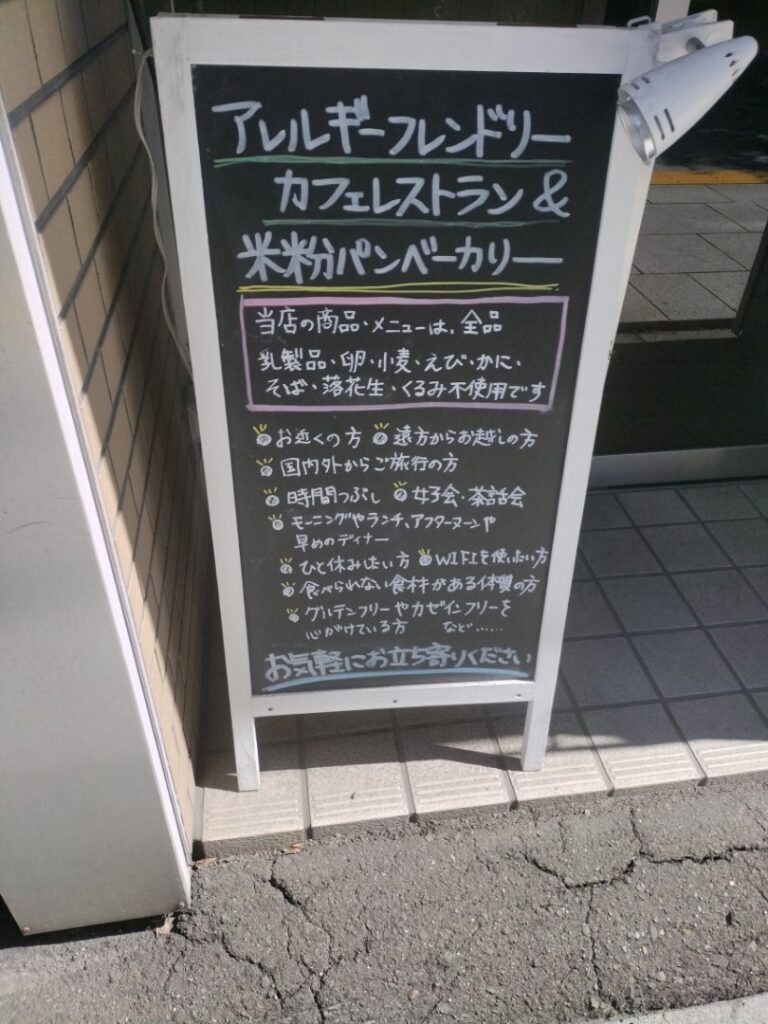 アレルギーフレンドリー
カフェレストラン &
米粉パンベーカリー
当店の商品・メニューは、全品
乳製品・卵・小麦・えび・かに・
そば・落花生・くるみ不使用です
お近くの方 遠方からお越しの方
国内外からご旅行の方
時間つぶし 女子会・茶話会
モーニングやランチ、アフターヌーンや
早めのディナー
ひと休みしたい方 WIFIを使いたい方
食べられない食材がある体質の方
グルテンフリーやカゼインフリーを
心がけている方 など……
お気軽にお立ち寄りください